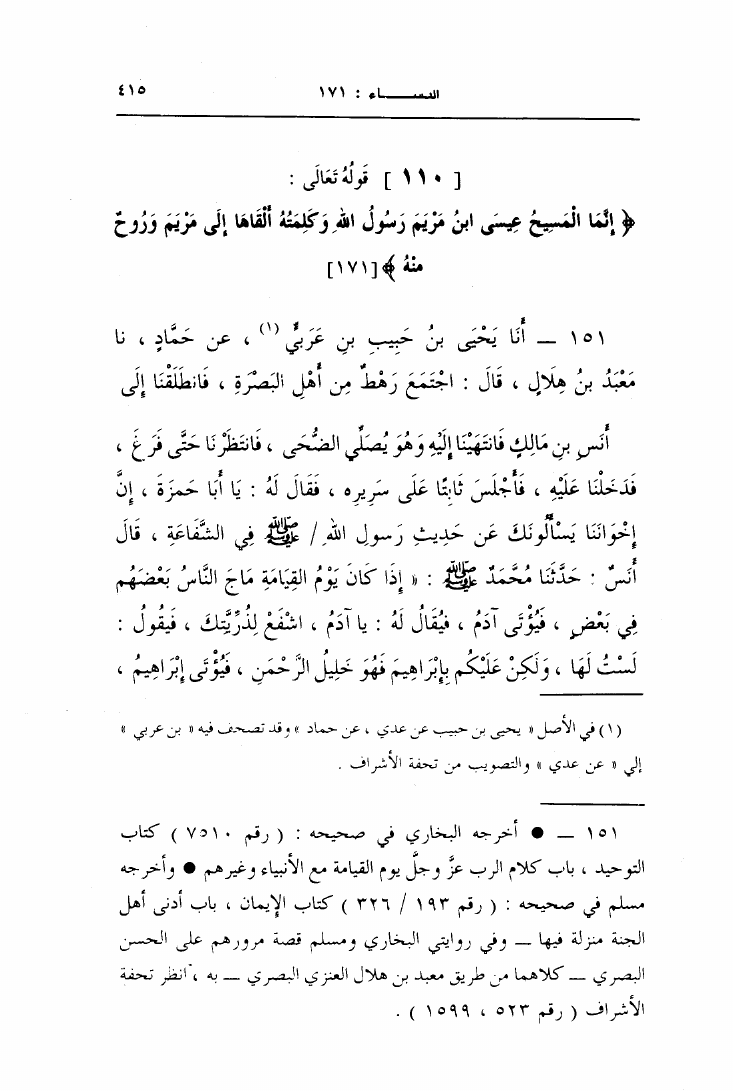 النساء : ١٧١ ٤١٥
[ ١١٠ ] قَولُهُ تَعَالَى :
﴿ إِنَّمَا الْمَسِيحُ عِيسَى ابنُ مَرْيَمَ رَسُولُ اللهِ وَكَلِمَتُهُ أَلْقَاهَا إِلَى مَرْيَمَ وَرُوحٌ
مِنْهُ ﴾ [١٧١]
١٥١ — أَنَا يَحْيَى بنُ حَبِيبِ بنِ عَرَبيٍّ (١) ، عن حَمَّادٍ ، نا
مَعْبَدُ بنُ هِلَالٍ ، قَالَ : اجْتَمَعَ رَهْطٌ مِن أَهْلِ البَصْرَةِ ، فَانطَلَقْنَا إِلَى
أَنَسِ بنِ مَالِكٍ فَانتَهَيْنَا إِلَيْهِ وَهُوَ يُصَلِّي الضُّحَى ، فَانتَظَرْنَا حَتَّى فَرَغَ ،
فَدَخَلْنَا عَلَيْهِ ، فَأَجْلَسَ ثَابِتًا عَلَى سَرِيرِه ، فَقَالَ لَهُ : يَا أَبَا حَمزَةَ ، إِنَّ
إِخْوَانَنَا يَسْأَلُونَكَ عَن حَدِيثِ رَسولِ اللهِ / ﷺ فِي الشَّفَاعَةِ ، قَالَ
أَنَسٌ : حَدَّثَنَا مُحَمَّدٌ ﷺ : « إِذَا كَانَ يَوْمُ القِيَامَةِ مَاجَ النَّاسُ بَعْضُهُم
فِي بَعْضٍ ، فَيُؤْتَى آدَمُ ، فَيُقَالُ لَهُ : يا آدَمُ ، اشْفَعْ لِذُرِّيَّتِكَ ، فَيقُولُ :
لَسْتُ لَهَا ، وَلَكِنْ عَلَيْكُم بِإِبْرَاهِيمَ فَهُوَ خَلِيلُ الرَّحْمَنِ ، فَيُؤْتَى إِبْرَاهِيمُ ،
(١) في الأصل « يحيى بن حبيب عن عدي ، عن حماد » وقد تصحف فيه « بن عربي »
إلي « عن عدي » والتصويب من تحفة الأشراف .
١٥١ — ● أخرجه البخاري في صحيحه : ( رقم ٧٥١٠ ) كتاب
التوحيد ، باب كلام الرب عزَّ وجلَّ يوم القيامة مع الأنبياء وغيرهم ● وأخرجه
مسلم في صحيحه : ( رقم ١٩٣ / ٣٢٦ ) كتاب الإيمان ، باب أدنى أهل
الجنة منزلة فيها — وفي روايتي البخاري ومسلم قصة مرورهم على الحسن
البصري — كلاهما من طريق معبد بن هلال العنزي البصري — به ، انظر تحفة
الأشراف ( رقم ٥٢٣ ، ١٥٩٩ ) .